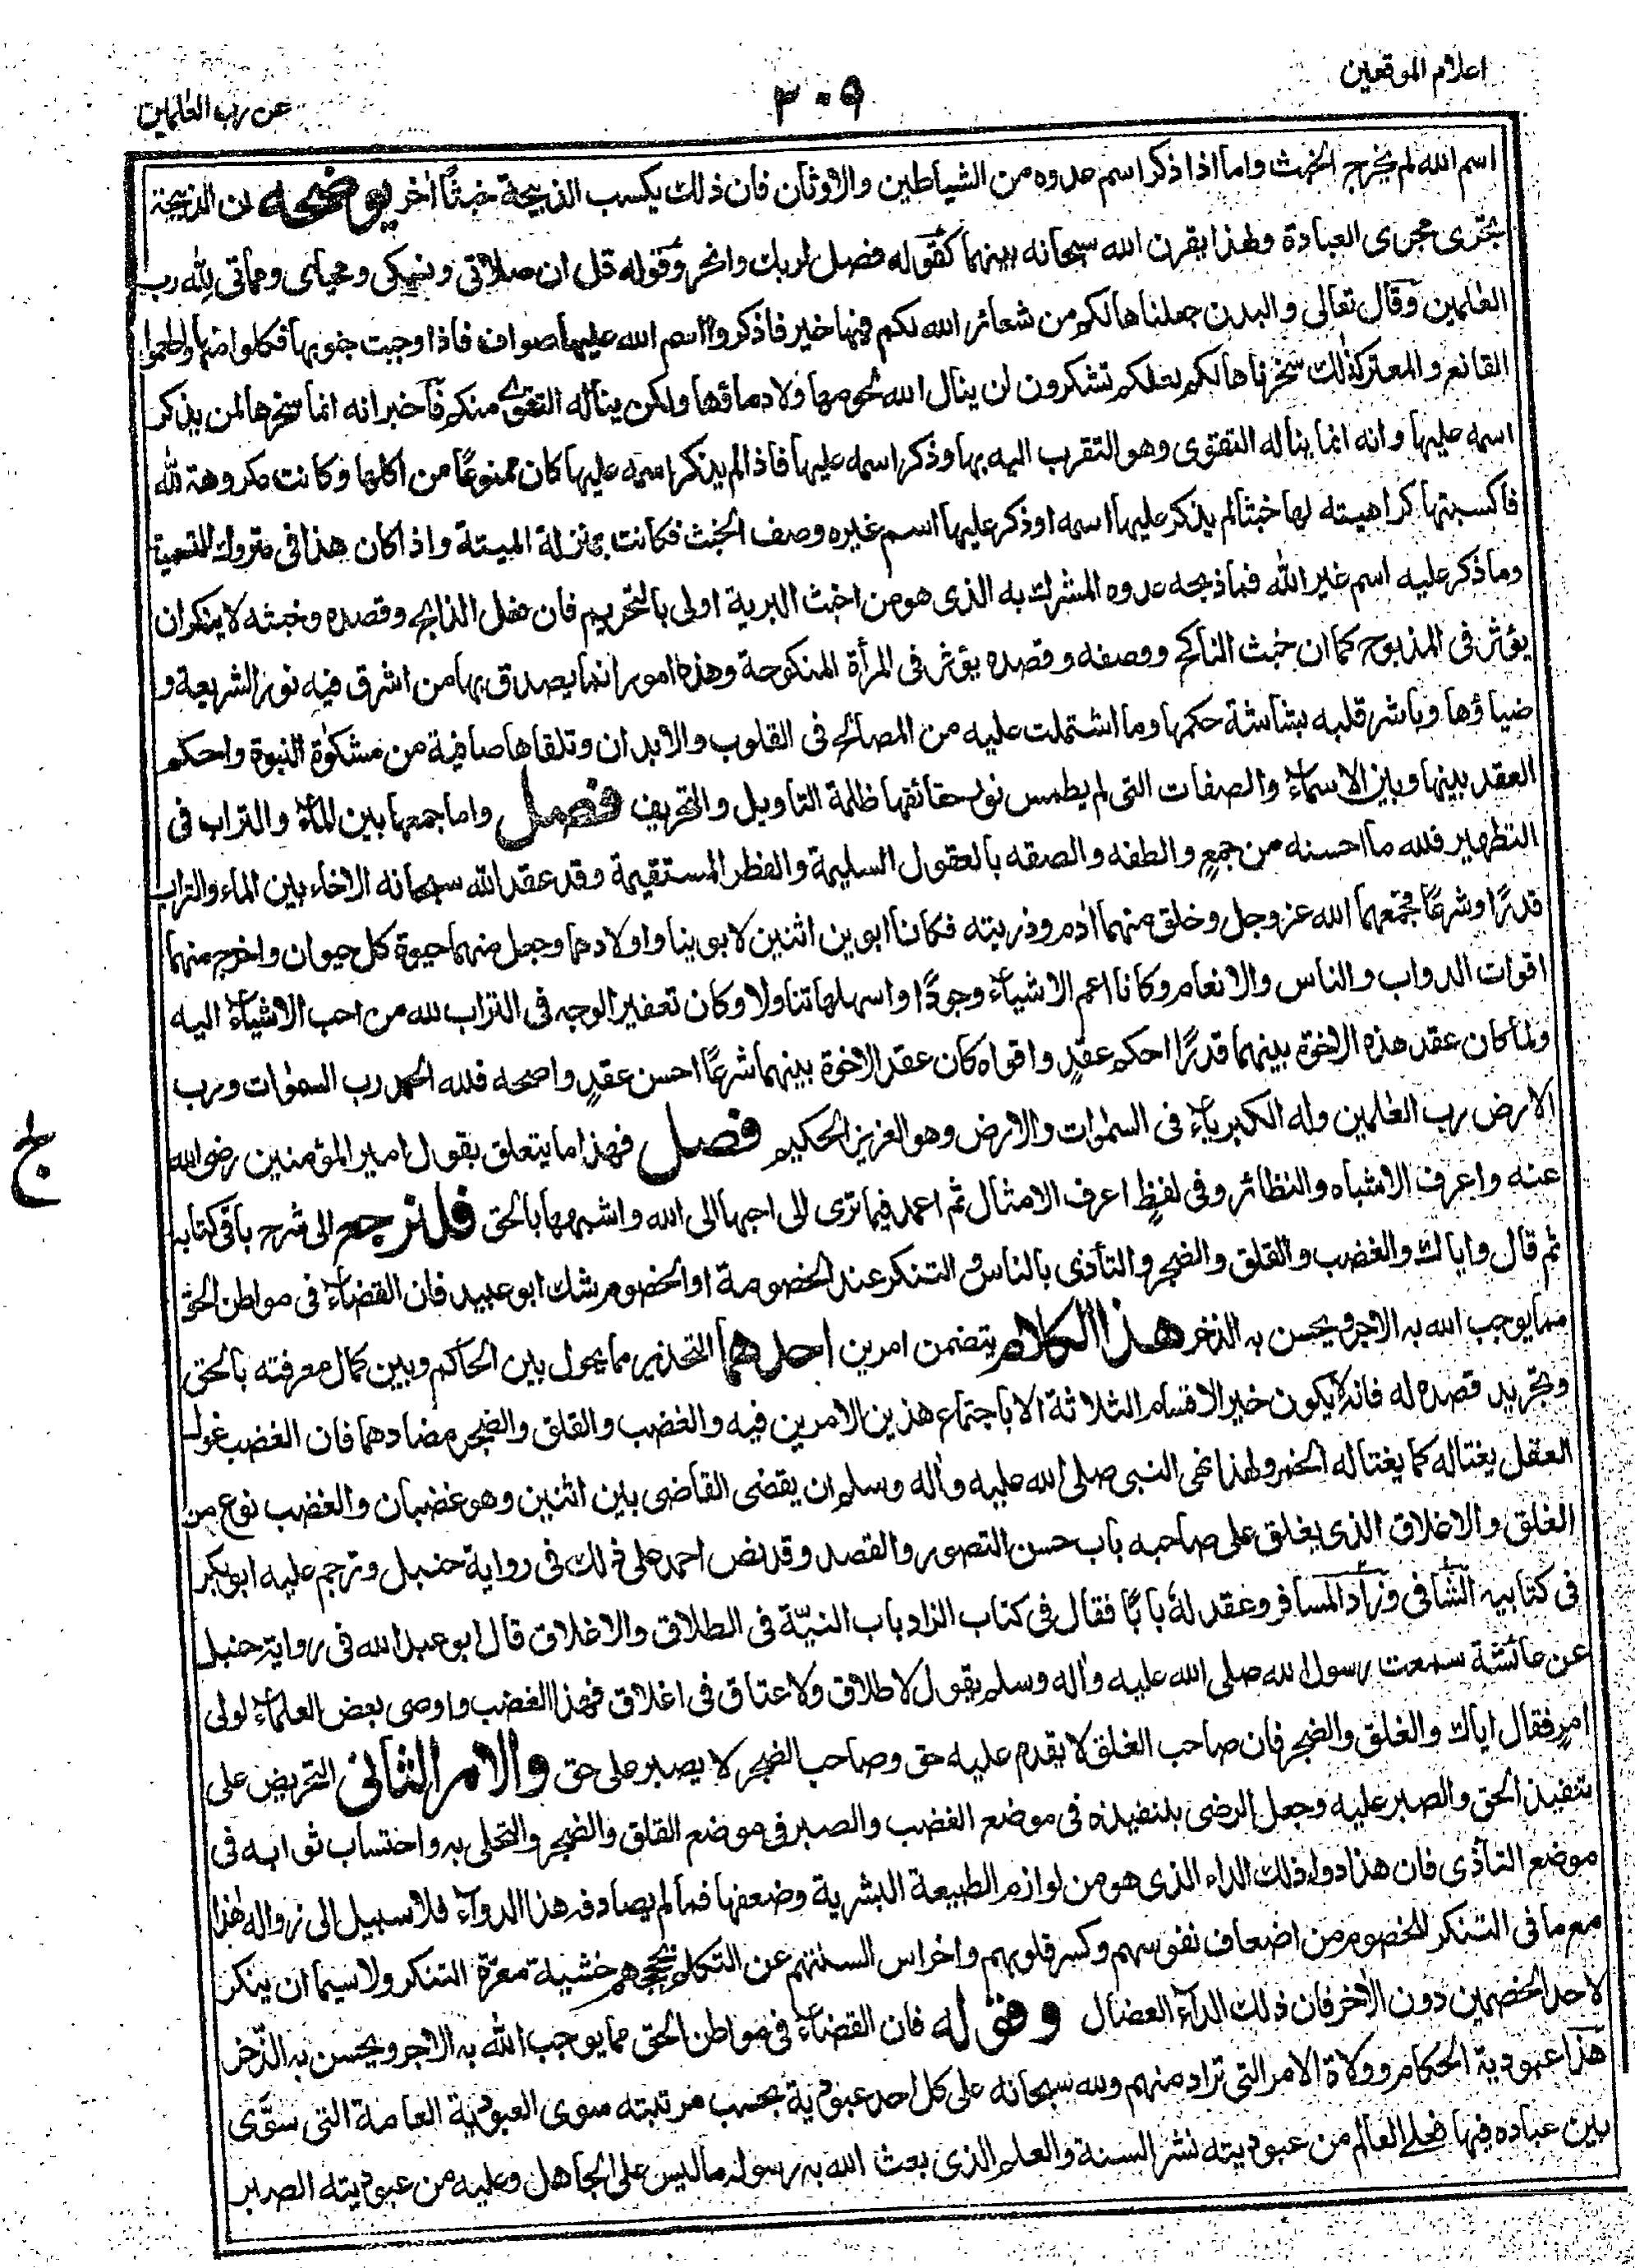 اعلام الموقعين
٣٠٩
عن رب العٰلمين
اسم الله لم يخرج الخبث واما اذا ذكر اسم عدوه من الشياطين والاوثان فان ذلك يكسب الذبيحة خبثًا اٰخر يوضحه ان الذبيحة
تجرى مجرى العبادة ولهذا يقرن الله سبحانه بينهما كقوله فصل لربك وانحر وقوله قل ان صلاتى ونسكى ومحياى ومماتى لله رب
العٰلمين وقال تعالى والبدن جعلناها لكم من شعائر الله لكم فيها خير فاذكروا اسم الله عليها صواف فاذا وجبت جنوبها فكلوا منها واطعموا
القانع والمعتر كذٰلك سخرناها لكم لعلكم تشكرون لن ينال الله لحومها ولا دماؤها ولكن يناله التقوى منكم فاخبر انه انما سخرها لمن يذكر
اسمه عليها وانه انما يناله التقوى وهو التقرب اليه بها وذكر اسمه عليها فاذا لم يذكر اسمه عليها كان ممنوعًا من اكلها وكانت مكروهة لله
فاكسبتها كراهيته لها خبثا لم يذكر عليها اسمه او ذكر عليها اسم غيره وصف الخبث فكانت بمنزلة الميتة واذا كان هذا فى متروك التسمية
وما ذكر عليه اسم غير الله فما ذبحه عدوه المشرك به الذى هو من اخبث البرية اولى بالتحريم فان فعل الذابح وقصده وخبثه لا ينكر ان
يؤثر فى المذبوح كما ان خبث الناكح ووصفه وقصده يؤثر فى المرأة المنكوحة وهذه امور انما يصدق بها من اشرق فيه نور الشريعة و
ضياؤها وباشر قلبه بشاشة حكمها وما اشتملت عليه من المصالح فى القلوب والابدان وتلقاها صافية من مشكوٰة النبوة واحكم
العقد بينها وبين الاسماء والصفات التى لم يطمس نور حقائقها ظلمة التاويل والتحريف فصل واما جمعها بين الماء والتراب فى
التطهير فلله ما احسنه من جمعٍ والطفه والصقه بالعقول السليمة والفطر المستقيمة وقد عقد الله سبحانه الاخاء بين الماء والتراب
قدرًا وشرعًا فجمعهما الله عز وجل وخلق منهما اٰدم وذريته فكانا ابوين اثنين لابوينا واولادهما وجعل منهما حيوة كل حيوان واخرج منهما
اقوات الدواب والناس والانعام وكانا اعم الاشياء وجودًا واسهلها تناولا وكان تعفير الوجه فى التراب لله من احب الاشياء اليه
ولما كان عقد هذه الاخوة بينهما قدرًا احكم عقدٍ واقواه كان عقد الاخوة بينهما شرعًا احسن عقدٍ واصحه فلله الحمد رب السمٰوات ورب
الارض رب العٰلمين وله الكبرياء فى السمٰوات والارض وهو العزيز الحكيم فصل فهذا ما يتعلق بقول امير المؤمنين رضى الله
عنه واعرف الاشباه والنظائر وفى لفظٍ اعرف الامثال ثم اعمد فيما ترى الى احبها الى الله واشبهها بالحق فلنرجع الى شرح باقى كتابه
ثم قال واياك والغضب والقلق والضجر والتأذى بالناس والتنكر عند الخصومة او الخصوم شك ابو عبيد فان القضاء فى مواطن الحق
مما يوجب الله به الاجر ويحسن به الذخر هذا الكلام يتضمن امرين احدهما التحذير مما يحول بين الحاكم وبين كمال معرفته بالحق
وتجريد قصده له فانه لا يكون خير الاقسام الثلاثة الا باجتماع هذين الامرين فيه والغضب والقلق والضجر مضادهما فان الغضب غول
العقل يغتاله كما يغتاله الخمر ولهذا نهى النبى صلى الله عليه واٰله وسلم ان يقضى القاضى بين اثنين وهو غضبان والغضب نوع من
الغلق والاغلاق الذى يغلق على صاحبه باب حسن التصور والقصد وقد نص احمد على ذلك فى رواية حنبل وترجم عليه ابو بكر
فى كتابيه الشافى وزاد المسافر وعقد له بابًا فقال فى كتاب الزاد باب النيّة فى الطلاق والاغلاق قال ابو عبد الله فى رواية حنبل
عن عائشة سمعت رسول الله صلى الله عليه واٰله وسلم يقول لا طلاق ولا عتاق فى اغلاق فهذا الغضب واوصى بعض العلماء لولى
امر فقال اياك والغلق والضجر فان صاحب الغلق لا يقدم عليه حق وصاحب الضجر لا يصبر على حق والامر الثانى التحريض على
تنفيذ الحق والصبر عليه وجعل الرضى بتنفيذه فى موضع الغضب والصبر فى موضع القلق والضجر والتحلى به واحتساب ثوابه فى
موضع التأذى فان هذا دواء ذلك الداء الذى هو من لوازم الطبيعة البشرية وضعفها فما لم يصادفه هذا الدواء فلا سبيل الى زواله هٰذا
مع ما فى التنكر للخصوم من اضعاف نفوسهم وكسر قلوبهم واخراس السنتهم عن التكلم بحججهم خشية معرّة التنكر ولا سيما ان ينكر
لاحد الخصمين دون الاٰخر فان ذلك الداء العضال وقوله فان القضاء فى مواطن الحق مما يوجب الله به الاجر ويحسن به الذّخر
هذا عبودية الحكام وولاة الامر التى تراد منهم ولله سبحانه على كل احد عبودية بحسب مرتبته سوى العبودية العامة التى سوّى
بين عباده فيها فعلى العالم من عبوديته نشر السنة والعلم الذى بعث الله به رسوله ما ليس على الجاهل وعليه من عبوديته الصبر